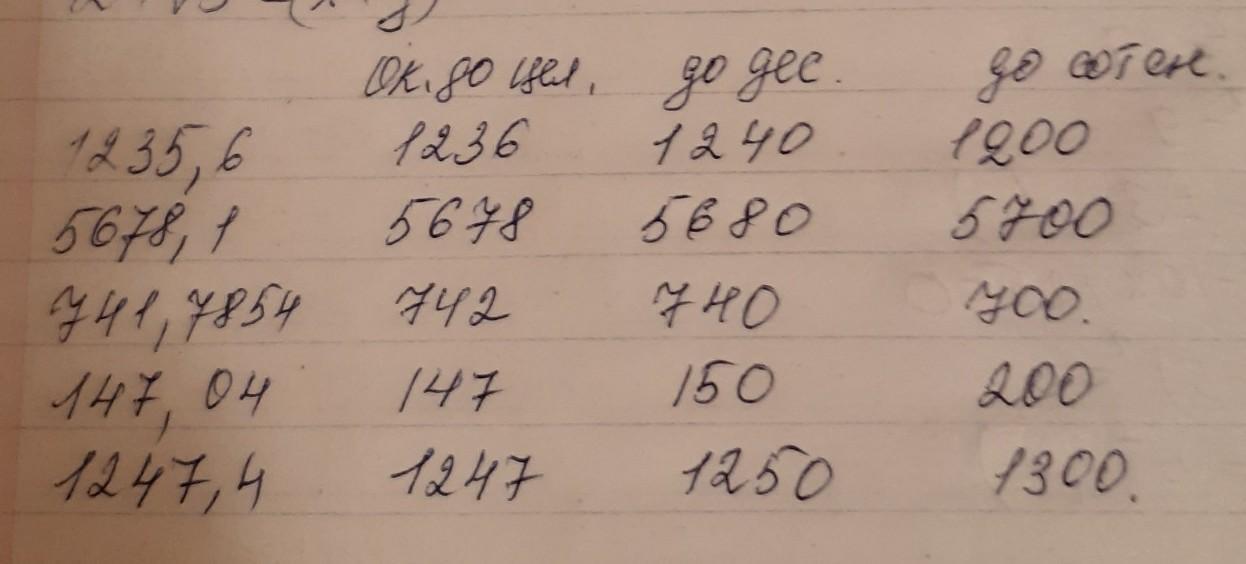 Ок. до цел. до дес. до сотен.
1235,6 1236 1240 1200
5678,1 5678 5680 5700
741,7854 742 740 700.
147,04 147 150 200
1247,4 1247 1250 1300.